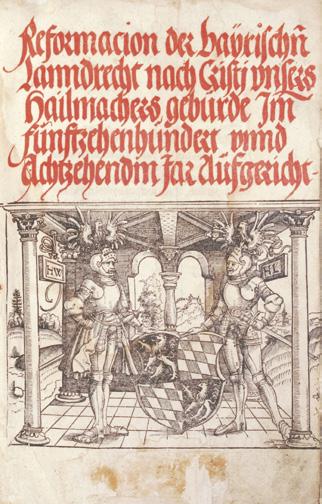 Reformacion der bayrischn̄
Lanndrecht nach Cristi vnsers
Hailmachers geburde Im
fünftzehenhundert vnnd
Achtzehendm Jar Aufgericht.
HW
HL